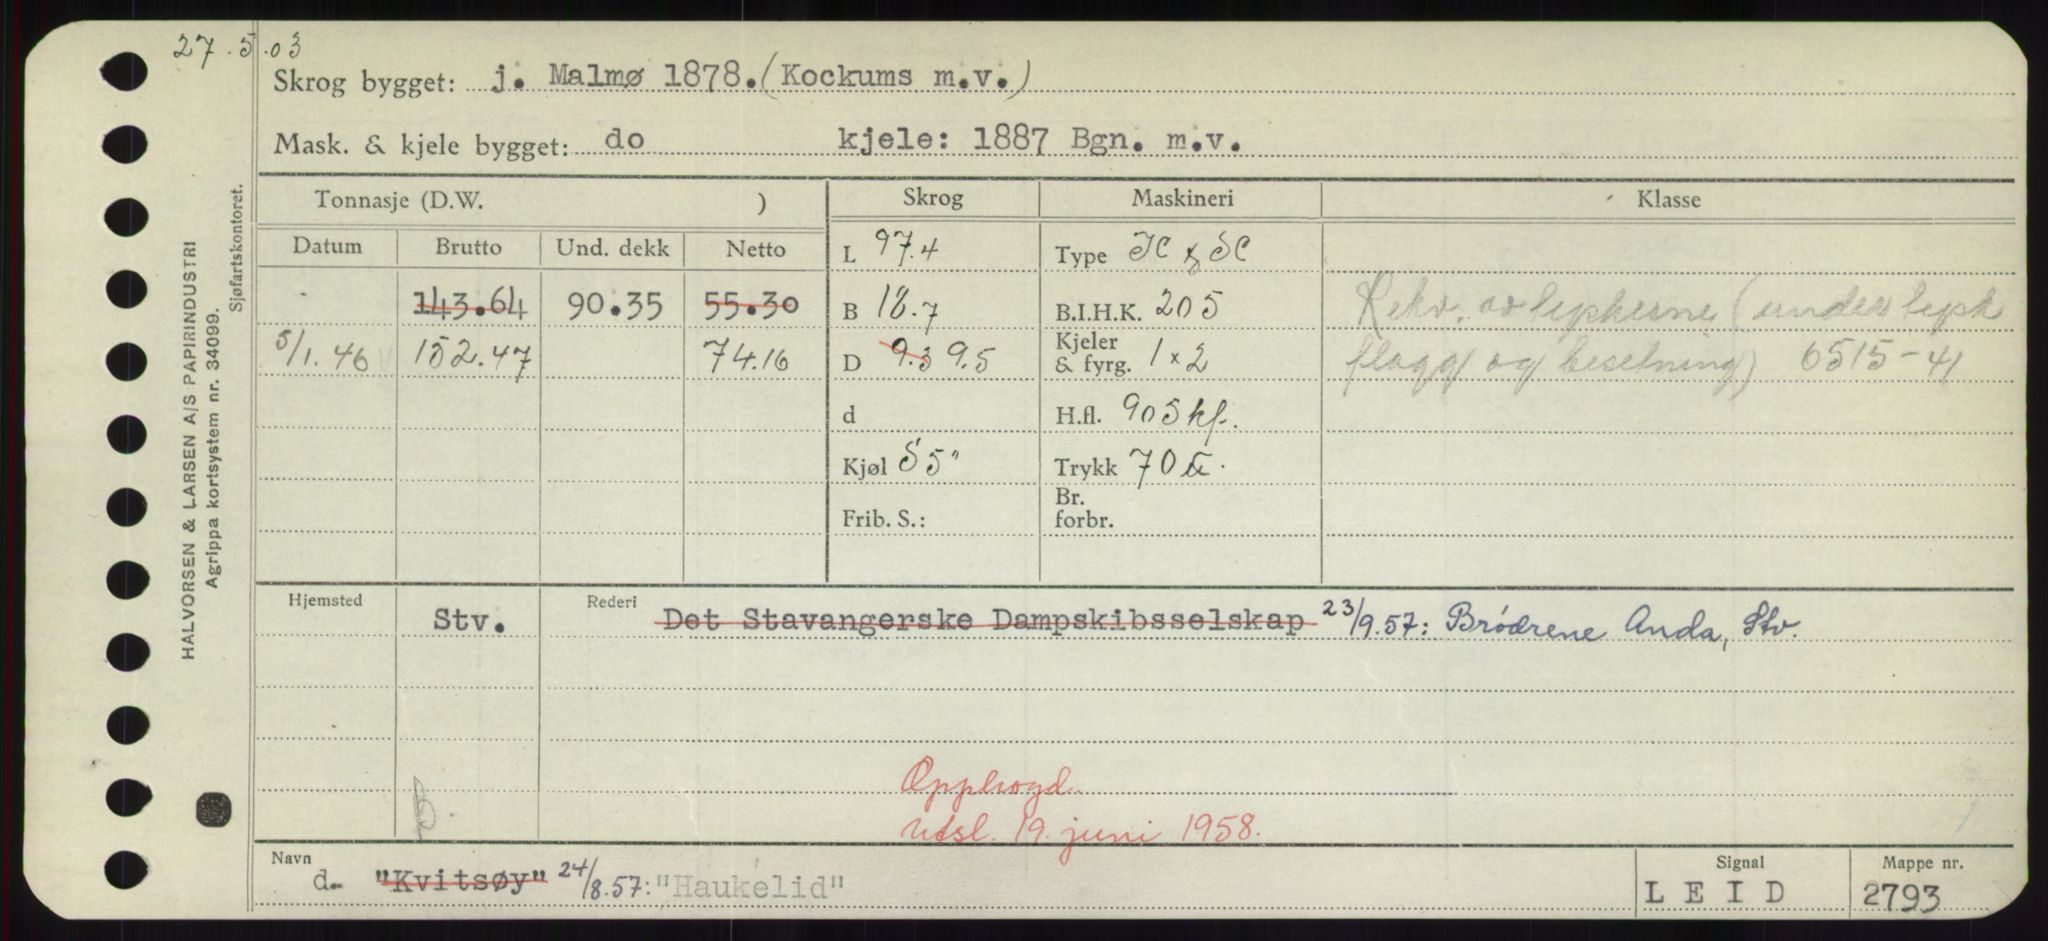 27.5.03
Skrog bygget: j. Malmø 1878. (Kockums m.v.)
Mask. & kjele bygget: do kjele: 1887 Bgn. m.v.
Tonnasje (D.W. ) Skrog Maskineri Klasse
Datum Brutto Und. dekk Netto
L 97.4 Type
143.64 90.35 55.30 B 18.7 B.I.H.K. 205 Rekv. av tyskerne (under tysk
5/1.46 152.47 74.16 D 9.3 9.5 Kjeler & fyrg. 1 x 2 flagg og besetning) 6515-41
d H.fl. 905 kf.
Kjøl S 5" Trykk 70
Frib. S.: Br. forbr.
Hjemsted Stv. Rederi Det Stavangerske Dampskibsselskap 23/9.57: Brødrene Anda, Stv.
Opphogd.
B. Utsl. 19. juni 1958.
Navn d. "Kvitsøy" 24/8.57: "Haukelid"
Signal LEID
Mappe nr. 2793
HALVORSEN & LARSEN A/S PAPIRINDUSTRI
Agrippa kortsystem nr. 34099.
Sjøfartskontoret.